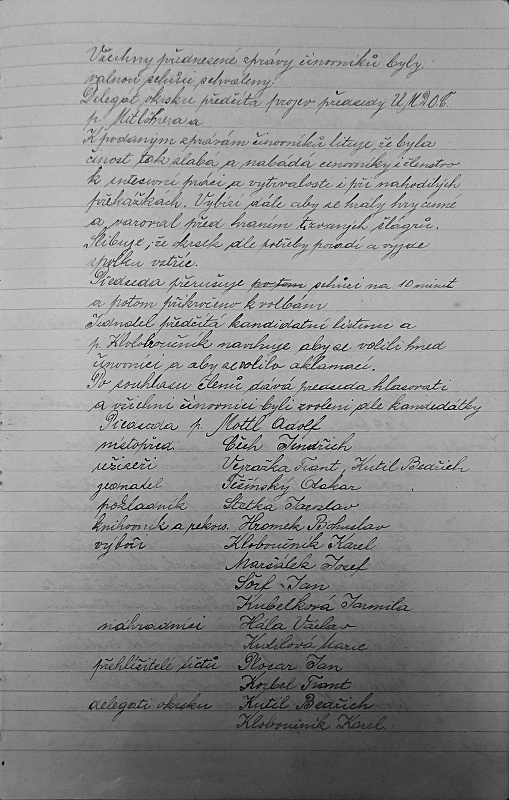 Všechny přednesené zprávy činovníků byly
valnou schůzí schváleny.
Delegát okrsku předčítá projev předsedy Ú.M.D.O.Č.
p.
K podaným zprávám činovníků lituje, že byla
činost tak slabá a nabádá činovníky i členstvo
k intesivní práci a vytrvalosti i při nahodilých
překážkách. Vybízí dále aby se hrály hry cenné
a varoval před hraním tzvaných šlágrů.
Slibuje, že okrsek dle potřeby poradí a vyjde
spolku vstříc.
Předseda přerušuje po tom schůzi na 10 minut
a potom přikročeno k volbám
Jednatel předčítá kandidatní listinu a
p. Kloboučník navrhuje aby se volili hned
činovníci a aby se volilo aklamací.
Po souhlasu členů dává předseda hlasovati
a všichni činovníci byli zvoleni dle kandidátky
Předseda p. Mottl Adolf
místopřed. Čech Jindřich
režiseři Vyražka Frant, Kutil Bedřich
jednatel Těšínský Otakar
pokladník Stetka Jaroslav
knihovník a rekvis. Hromek Bohuslav
výboři Kloboučník Karel
Maršálek Josef
Šorf Jan
Kubelková Jarmila
nahradníci Hála Václav
Kutilová Marie
přehlížitelé účtů Plocar Jan
Korbel Frant
delegati okrsku Kutil Bedřich
Kloboučník Karel